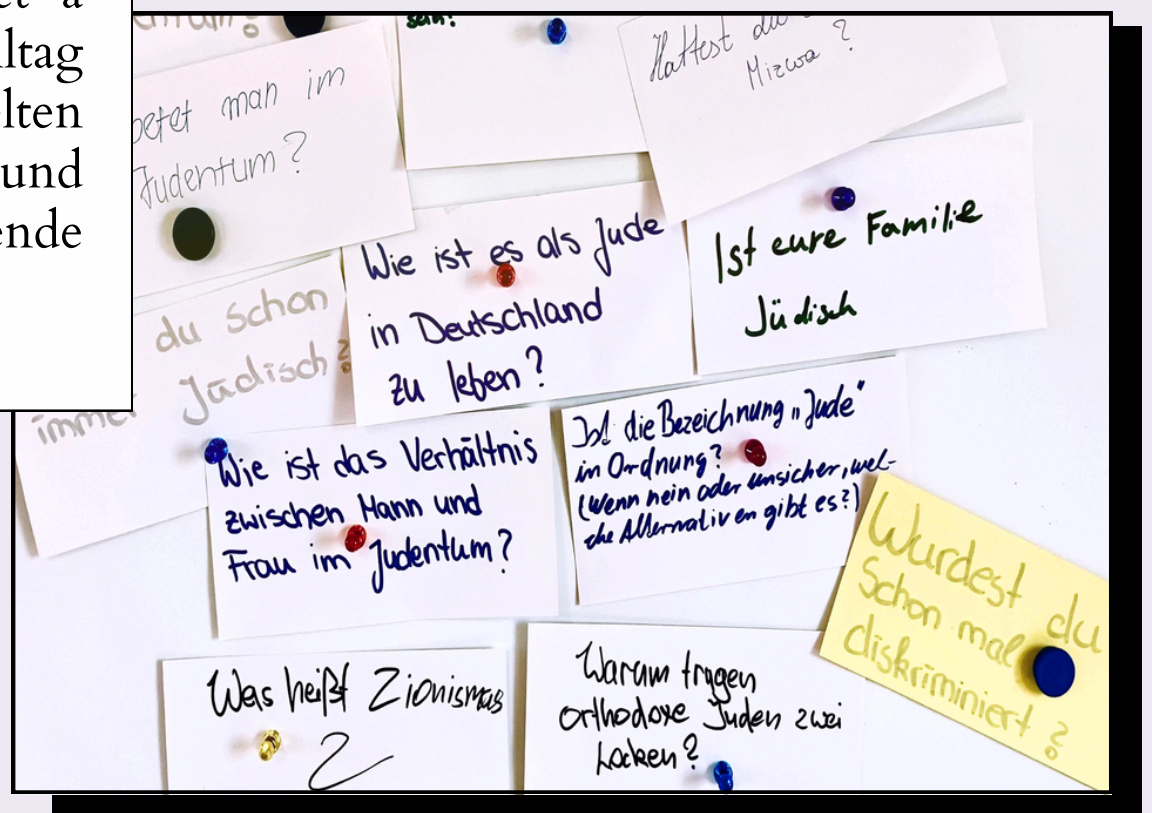 ltag
lten
und
ende
sein!
betet man im
Judentum?
Hattest du
Mizwa?
Wie ist es als Jude
in Deutschland
zu leben?
Ist eure Familie
Jüdisch
du schon
immer Jüdisch?
Wie ist das Verhältnis
zwischen Mann und
Frau im Judentum?
Ist die Bezeichnung „Jude"
in Ordnung?
(Wenn nein oder unsicher, wel-
che Alternativen gibt es?)
Wurdest du
Schon mal
diskriminiert?
Was heißt Zionismus
?
Warum tragen
orthodoxe Juden zwei
Locken?